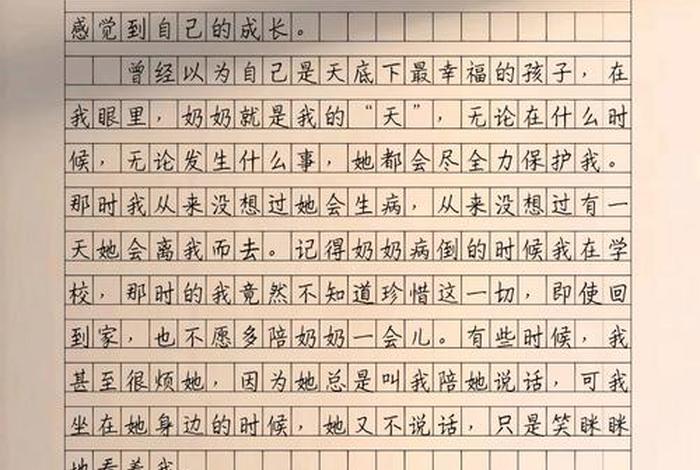 感觉到自己的成长。
曾经以为自己是天底下最幸福的孩子，在
我眼里，奶奶就是我的“天”，无论在什么时
候，无论发生什么事，她都会尽全力保护我。
那时我从来没想过她会生病，从来没想过有一
天她会离我而去。记得奶奶病倒的时候我在学
校，那时的我竟然不知道珍惜这一切，即使回
到家，也不愿多陪奶奶一会儿。有些时候，我
甚至很烦她，因为她总是叫我陪她说话，可我
坐在她身边的时候，她又不说话，只是笑眯眯
地看着我